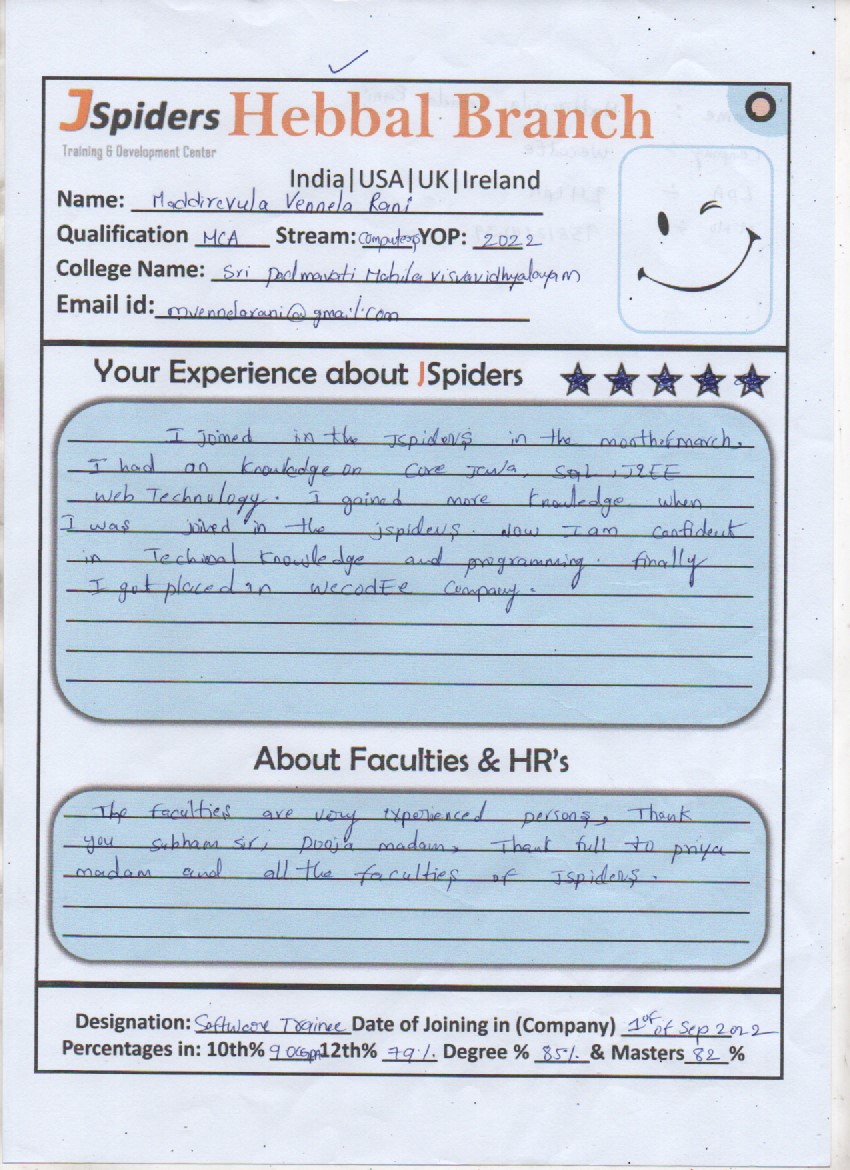 JSpiders Hebbal Branch
Training & Development Center
India|USA|UK|Ireland
Name: Maddirevula Vennela Rani
Qualification MCA Stream: Computers YOP: 2022
College Name: Sri padmavati Mahila visvavidhyalayam
Email id: mvennelarani@gmail.com
Your Experience about JSpiders
I joined in the Jspiders in the month of march.
I had an knowledge on Core Java, SQL, J2EE
Web Technology. I gained more knowledge when
I was joined in the jspiders. Now I am confident
in Techinal knowledge and programming. finally
I got placed in WecodEe Company.
About Faculties & HR's
The faculties are very experienced persons, Thank
you Subham sir, Pooja madam, Thank full to priya
madam and all the faculties of Jspiders.
Designation: Software Trainee Date of Joining in (Company) 1st of Sep 2022
Percentages in: 10th% 9.0 12th% 79% Degree % 85% & Masters 82 %